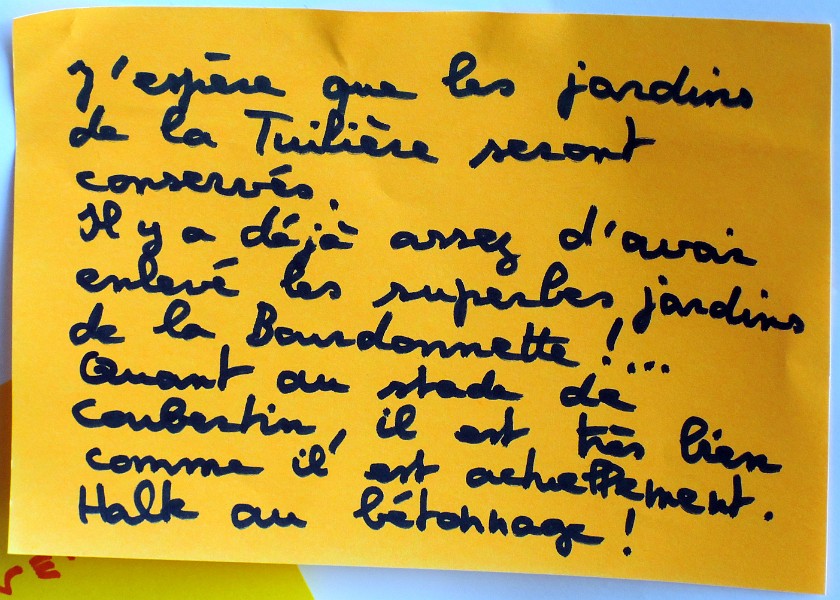 J'espère que les jardins
de la Tuilière seront
conservés.
Il y a déjà assez d'avoir
enlevé les superbes jardins
de la Bourdonnette !...
Quant au stade de
Coubertin, il est très bien
comme il est actuellement.
Halte au bétonnage !